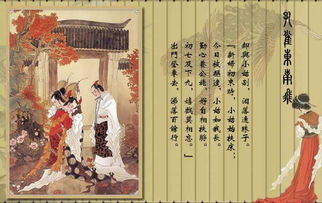 孔雀東南飛
却與小姑別，淚落連珠子。
「新婦初來時，小姑始扶床；
今日被驅遣，小姑如我長。
勤心養公姥，好自相扶將。
初七及下九，嬉戲莫相忘。」
出門登車去，涕落百餘行。